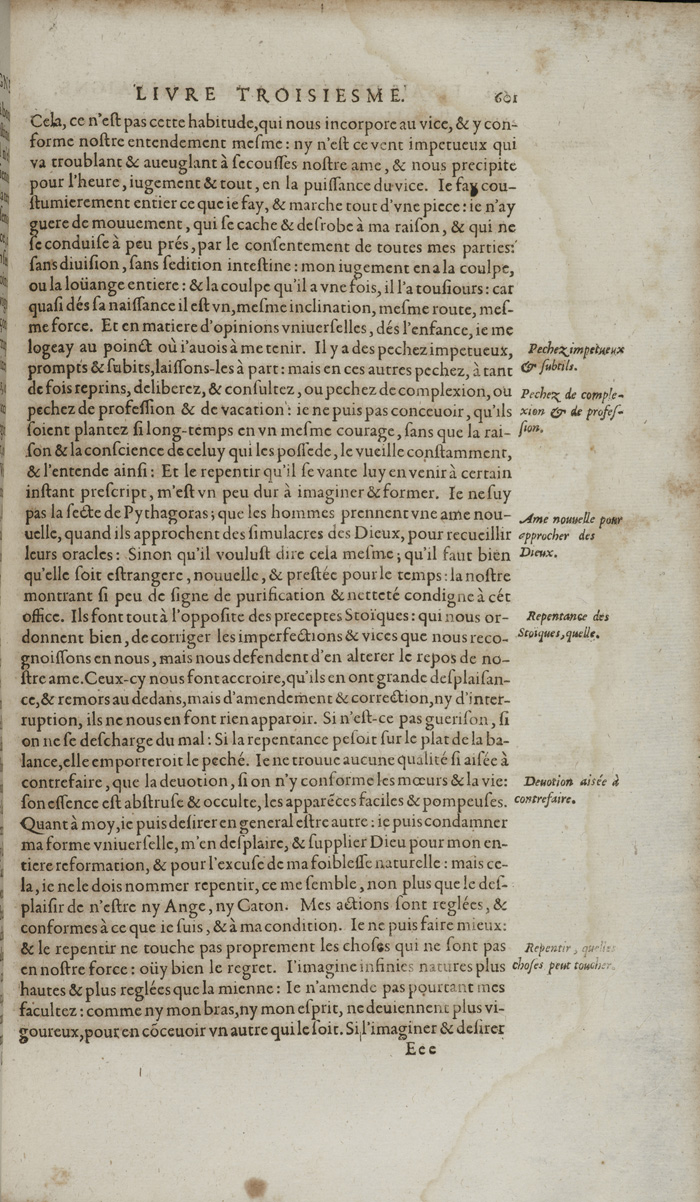 LIVRE TROISIESME. 601
Cela, ce n'eſt pas cette habitude, qui nous incorpore au vice, & y con-
forme noſtre entendement meſme : ny n'eſt ce vent impetueux qui
va troublant & aueuglant à ſecouſſes noſtre ame, & nous precipite
pour l'heure, iugement & tout, en la puiſſance du vice. Ie fay cou-
ſtumierement entier ce que ie fay, & marche tout d'vne piece : ie n'ay
guere de mouuement, qui ſe cache & deſrobe à ma raiſon, & qui ne
ſe conduiſe à peu prés, par le conſentement de toutes mes parties:
ſans diuiſion, ſans ſedition inteſtine : mon iugement en a la coulpe,
ou la loüange entiere : & la coulpe qu'il a vne fois, il l'a touſiours : car
quaſi dés ſa naiſſance il eſt vn, meſme inclination, meſme route, meſ-
me force. Et en matiere d'opinions vniuerſelles, dés l'enfance, ie me
logeay au poinct où i'auois à me tenir. Il y a des pechez impetueux,
prompts & ſubits, laiſſons-les à part : mais en ces autres pechez, à tant
de fois reprins, deliberez, & conſultez, ou pechez de complexion, ou
pechez de profeſſion & de vacation : ie ne puis pas conceuoir, qu'ils
ſoient plantez ſi long-temps en vn meſme courage, ſans que la rai-
ſon & la conſcience de celuy qui les poſſede, le vueille conſtamment,
& l'entende ainſi : Et le repentir qu'il ſe vante luy en venir à certain
inſtant preſcript, m'eſt vn peu dur à imaginer & former. Ie ne ſuy
pas la ſecte de Pythagoras ; que les hommes prennent vne ame nou-
uelle, quand ils approchent des ſimulacres des Dieux, pour recueillir
leurs oracles : Sinon qu'il vouluſt dire cela meſme ; qu'il faut bien
qu'elle ſoit eſtrangere, nouuelle, & preſtée pour le temps : la noſtre
montrant ſi peu de ſigne de purification & netteté condigne à cét
office. Ils font tout à l'oppoſite des preceptes Stoïques : qui nous or-
donnent bien, de corriger les imperfections & vices que nous reco-
gnoiſſons en nous, mais nous defendent d'en alterer le repos de no-
ſtre ame. Ceux-cy nous font accroire, qu'ils en ont grande deſplaiſan-
ce, & remors au dedans, mais d'amendement & correction, ny d'inter-
ruption, ils ne nous en font rien apparoir. Si n'eſt-ce pas gueriſon, ſi
on ne ſe deſcharge du mal : Si la repentance peſoit ſur le plat de la ba-
lance, elle emporteroit le peché. Ie ne trouue aucune qualité ſi aiſée à
contrefaire, que la deuotion, ſi on n'y conforme les mœurs & la vie:
ſon eſſence eſt abſtruſe & occulte, les apparẽces faciles & pompeuſes.
Quant à moy, ie puis deſirer en general eſtre autre : ie puis condamner
ma forme vniuerſelle, m'en deſplaire, & ſupplier Dieu pour mon en-
tiere reformation, & pour l'excuſe de ma foibleſſe naturelle : mais ce-
la, ie ne le dois nommer repentir, ce me ſemble, non plus que le deſ-
plaiſir de n'eſtre ny Ange, ny Caton. Mes actions ſont reglées, &
conformes à ce que ie ſuis, & à ma condition. Ie ne puis faire mieux:
& le repentir ne touche pas proprement les choſes qui ne ſont pas
en noſtre force : oüy bien le regret. I'imagine infinies natures plus
hautes & plus reglées que la mienne : Ie n'amende pas pourtant mes
facultez : comme ny mon bras, ny mon eſprit, ne deuiennent plus vi-
goureux, pour en cõceuoir vn autre qui le ſoit. Si l'imaginer & deſirer
Eee
Pechez impetueux
& ſubtils.
Pechez de comple-
xion & de profeſ-
ſion.
Ame nouuelle pour
approcher des
Dieux.
Repentance des
Stoïques, quelle.
Deuotion aiſée à
contrefaire.
Repentir, quelles
choſes peut toucher.